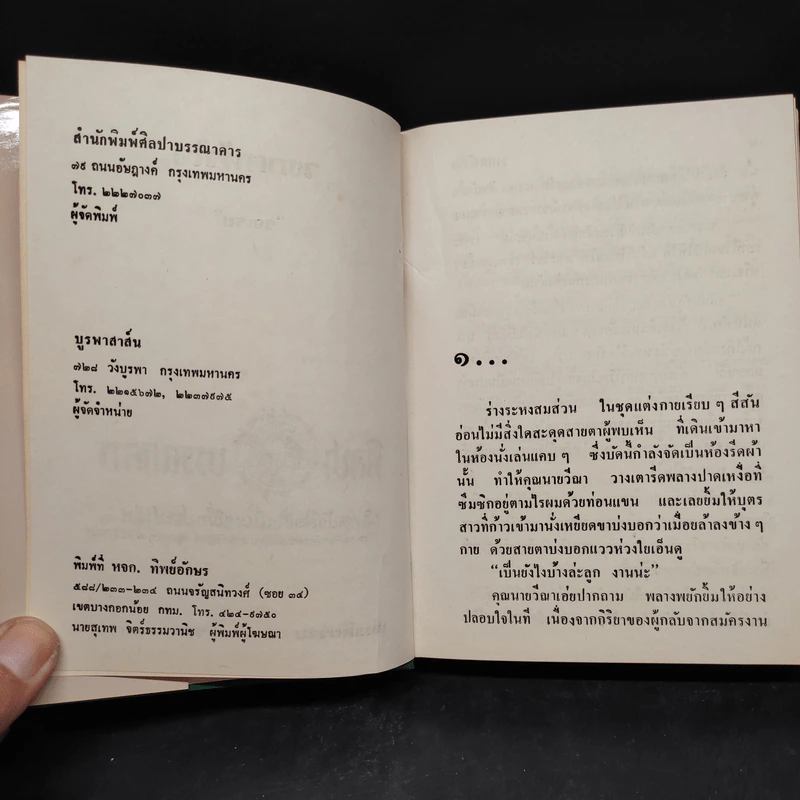 สำนักพิมพ์ศิลปาบรรณาคาร
๗๙ ถนนอัษฎางค์ กรุงเทพมหานคร
โทร. ๒๒๒๗๐๓๗
ผู้จัดพิมพ์
บูรพาสาส์น
๗๒๘ วังบูรพา กรุงเทพมหานคร
โทร. ๒๒๑๕๖๗๒, ๒๒๓๗๙๗๕
ผู้จัดจำหน่าย
พิมพ์ที่ หจก. ทิพย์อักษร
๕๘๘/๒๓๓-๒๓๔ ถนนจรัญสนิทวงศ์ (ซอย ๓๔)
เขตบางกอกน้อย กทม. โทร. ๔๒๔-๙๗๕๐
นายสุเทพ จิตร์ธรรมวานิช ผู้พิมพ์ผู้โฆษณา
๑...
ร่างระหงสมส่วน ในชุดแต่งกายเรียบ ๆ สีสัน
อ่อนไม่มีสิ่งใดสะดุดสายตาผู้พบเห็น ที่เดินเข้ามาหา
ในห้องนั่งเล่นแคบ ๆ ซึ่งบัดนี้กำลังจัดเป็นห้องรีดผ้า
นั้น ทำให้คุณนายวีณา วางเตารีดพลางปาดเหงื่อที่
ซึมซิกอยู่ตามไรผมด้วยท่อนแขน และเลยยิ้มให้บุตร
สาวที่ก้าวเข้ามานั่งเหยียดขาบ่งบอกว่าเมื่อยล้าลงข้าง ๆ
กาย ด้วยสายตาบ่งบอกแววห่วงใยเอ็นดู
“เป็นยังไงบ้างล่ะลูก งานน่ะ”
คุณนายวีณาเอ่ยปากถาม พลางพยักยิ้มให้อย่าง
ปลอบใจในที เนื่องจากกิริยาของผู้กลับจากสมัครงาน